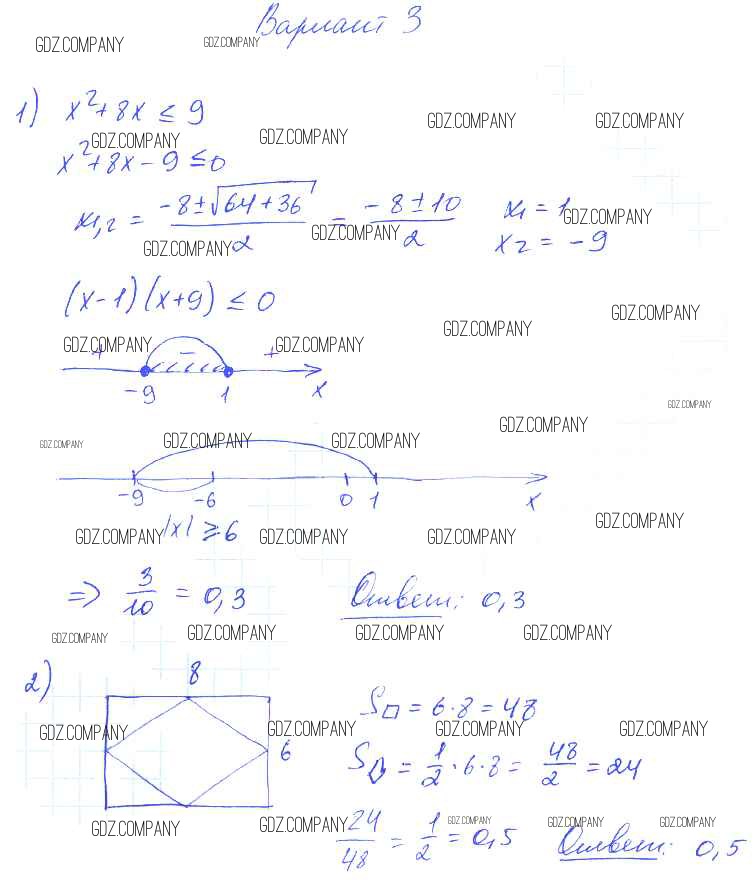 Вариант 3
GDZ.COMPANY GDZ.COMPANY
1) x²+8x ≤ 9
GDZ.COMPANY GDZ.COMPANY GDZ.COMPANY GDZ.COMPANY
x²+8x-9 ≤0
x₁,₂ = (-8±√(64+36))/2 = (-8±10)/2 x₁ = 1
GDZ.COMPANY GDZ.COMPANY GDZ.COMPANY
x₂ = -9
(x-1)(x+9) ≤ 0
GDZ.COMPANY GDZ.COMPANY
GDZ.COMPANY GDZ.COMPANY
+ - +
-9 1 x
GDZ.COMPANY
GDZ.COMPANY GDZ.COMPANY GDZ.COMPANY GDZ.COMPANY
-9 -6 0 1 x
|x| ≥ 6
GDZ.COMPANY GDZ.COMPANY GDZ.COMPANY GDZ.COMPANY
=> 3/10 = 0,3 Ответ: 0,3
GDZ.COMPANY GDZ.COMPANY GDZ.COMPANY GDZ.COMPANY
2) 8
6
S▭ = 6·8 = 48
GDZ.COMPANY GDZ.COMPANY GDZ.COMPANY GDZ.COMPANY
S◊ = 1/2·6·8 = 48/2 = 24
GDZ.COMPANY GDZ.COMPANY GDZ.COMPANY GDZ.COMPANY GDZ.COMPANY
24/48 = 1/2 = 0,5 Ответ: 0,5